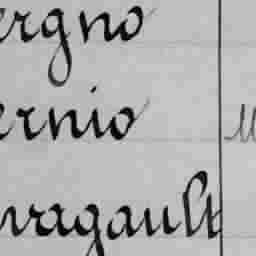 ergno
ernio
rragault